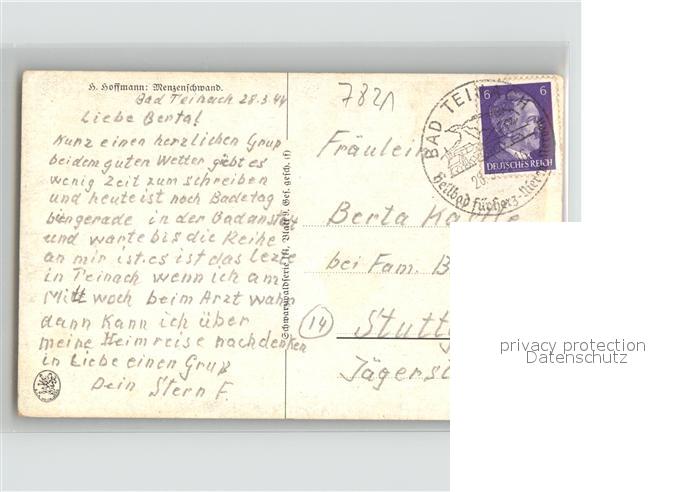 H. Hoffmann: Menzenschwand.
Bad Teinach 28.3.44
Liebe Berta!
Kurz einen herzlichen Gruß
bei dem guten Wetter giebt es
wenig Zeit zum schreiben
und heute ist noch Badetag
bin gerade in der Badanstalt
und warte bis die Reihe
an mir ist. es ist das lezte
in Teinach wenn ich am
Mittwoch beim Arzt wahr
dann kann ich über
meine Heimreise nachdenken
in Liebe einen Gruß
Dein Stern F.
Schwarzwaldserie III, Blatt 9. Ges. gesch. (f)
7821
Fräulein
Berta
bei Fam. B
(14) Stuttg
Jägerst
BAD TEINACH
28.
Heilbad für Herz-
6 6
DEUTSCHES REICH
privacy protection
Datenschutz